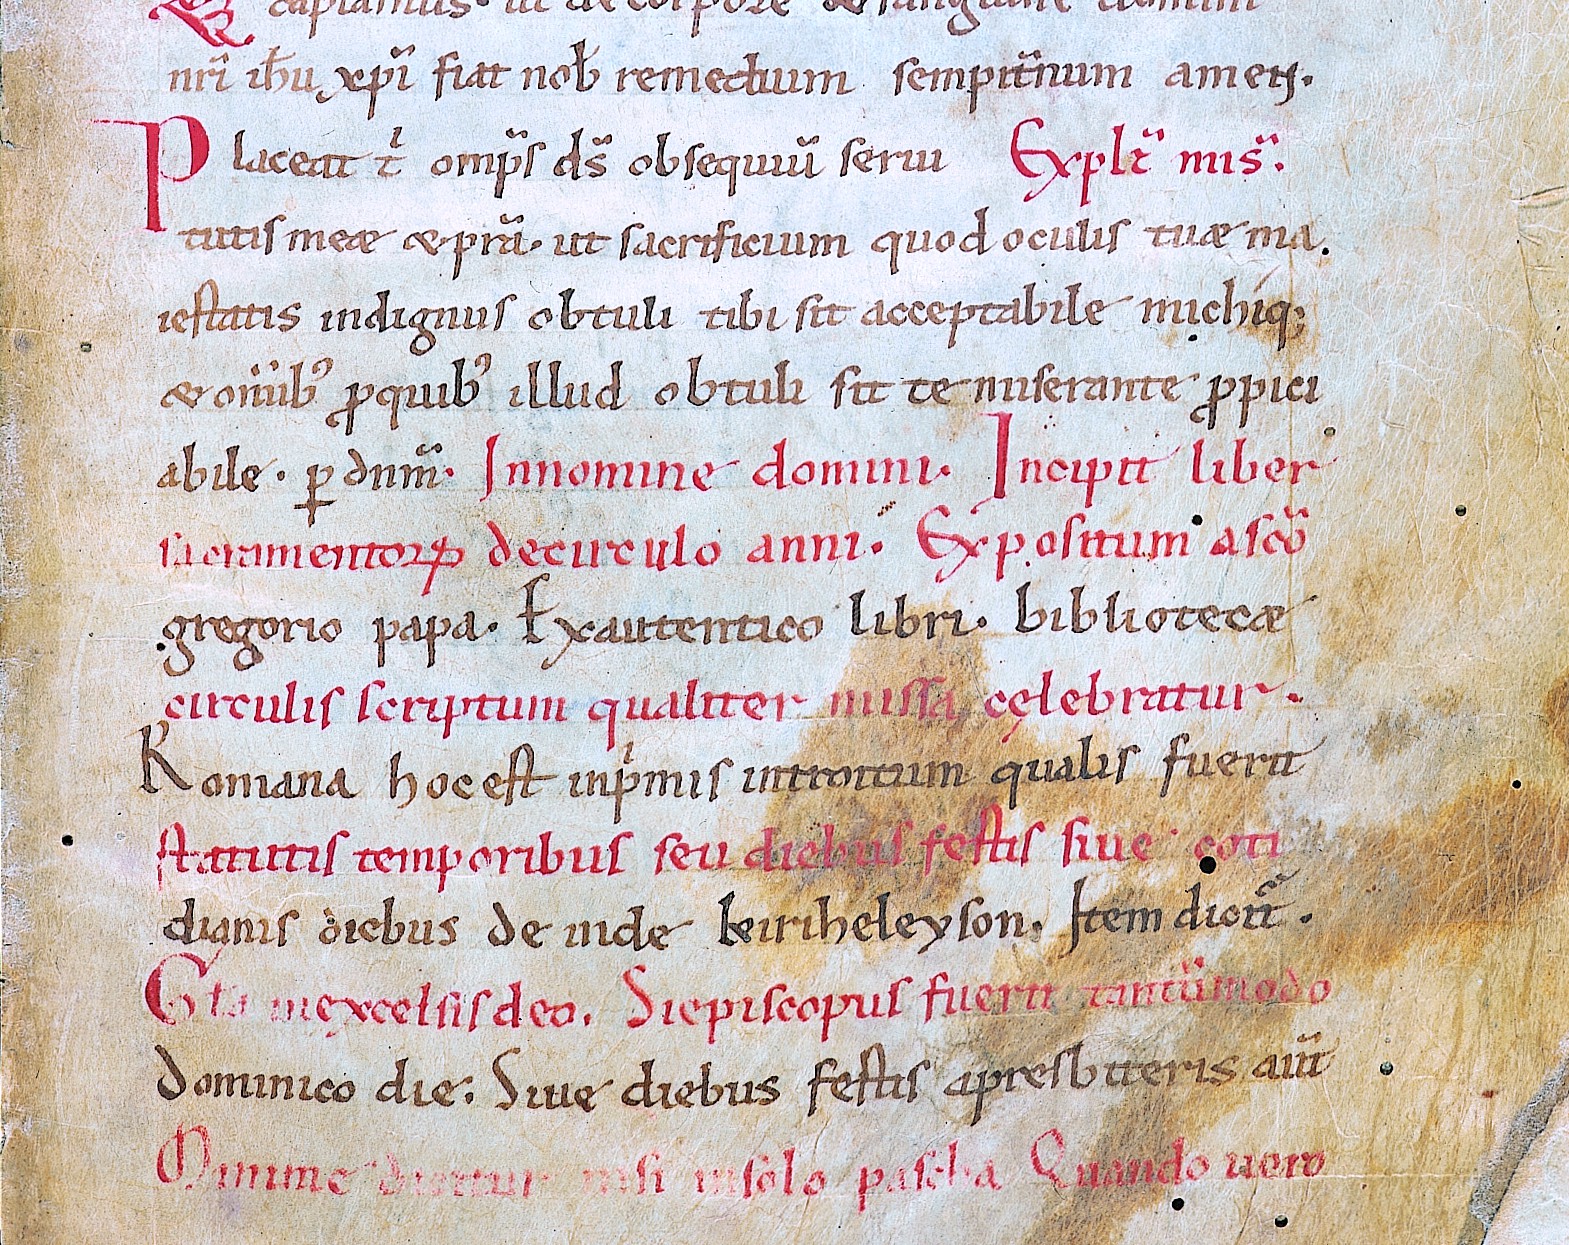 capiamus. ut de corpore & sanguine domini
nr̄i ih̄u xp̄i fiat nob̄ remedium sempit̄num amen.
Placeat t̄ om̄ps d̄s obsequiū serui Explit̄ mis̄.
tutis meæ & pr̄a. ut sacrificium quod oculis tuæ ma.
iestatis indignus obtuli tibi sit acceptabile michiq;
& om̄ibꝰ ꝓquibꝰ illud obtuli sit te miserante ꝓpici
abile. ꝑ dnm̄. Innomine domini. Incipit liber
sacramentoꝝ decirculo anni. Expositum ascō
gregorio papa. Exautentico libri. bibliotecæ
circulis scriptum qualiter missa celebratur.
Romana hocest inpⁱmis introitum qualis fuerit
statutis temporibus seu diebus festis siue coti
dianis diebus de inde kiriheleyson. Item dicit̄.
Gła inexcelsisdeo. Siepiscopus fuerit tantūmodo
dominico die. Siue diebus festis apresbiteris aūt
Minime dicitur nisi insolo pascha Quando uero